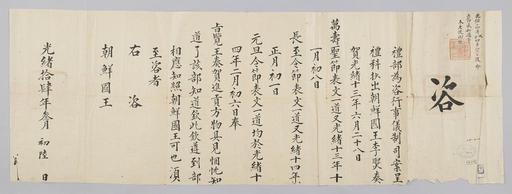 咨
禮部為咨行事儀制司案呈
禮科抄出朝鮮國王李熙奏
賀光緒十三年六月二十八日
萬壽聖節表文一道又光緒十三年十
一月初八日
長至令節表文一道又光緒十四年
正月初一日
元旦令節表文一道均於光緒十
四年二月初六日奉
旨覽王奏賀進貢方物具見悃忱知
道了該部知道欽此欽遵到部
相應知照朝鮮國王可也須
至咨者
右咨
朝鮮國王
光緒拾肆年叁月初陸日